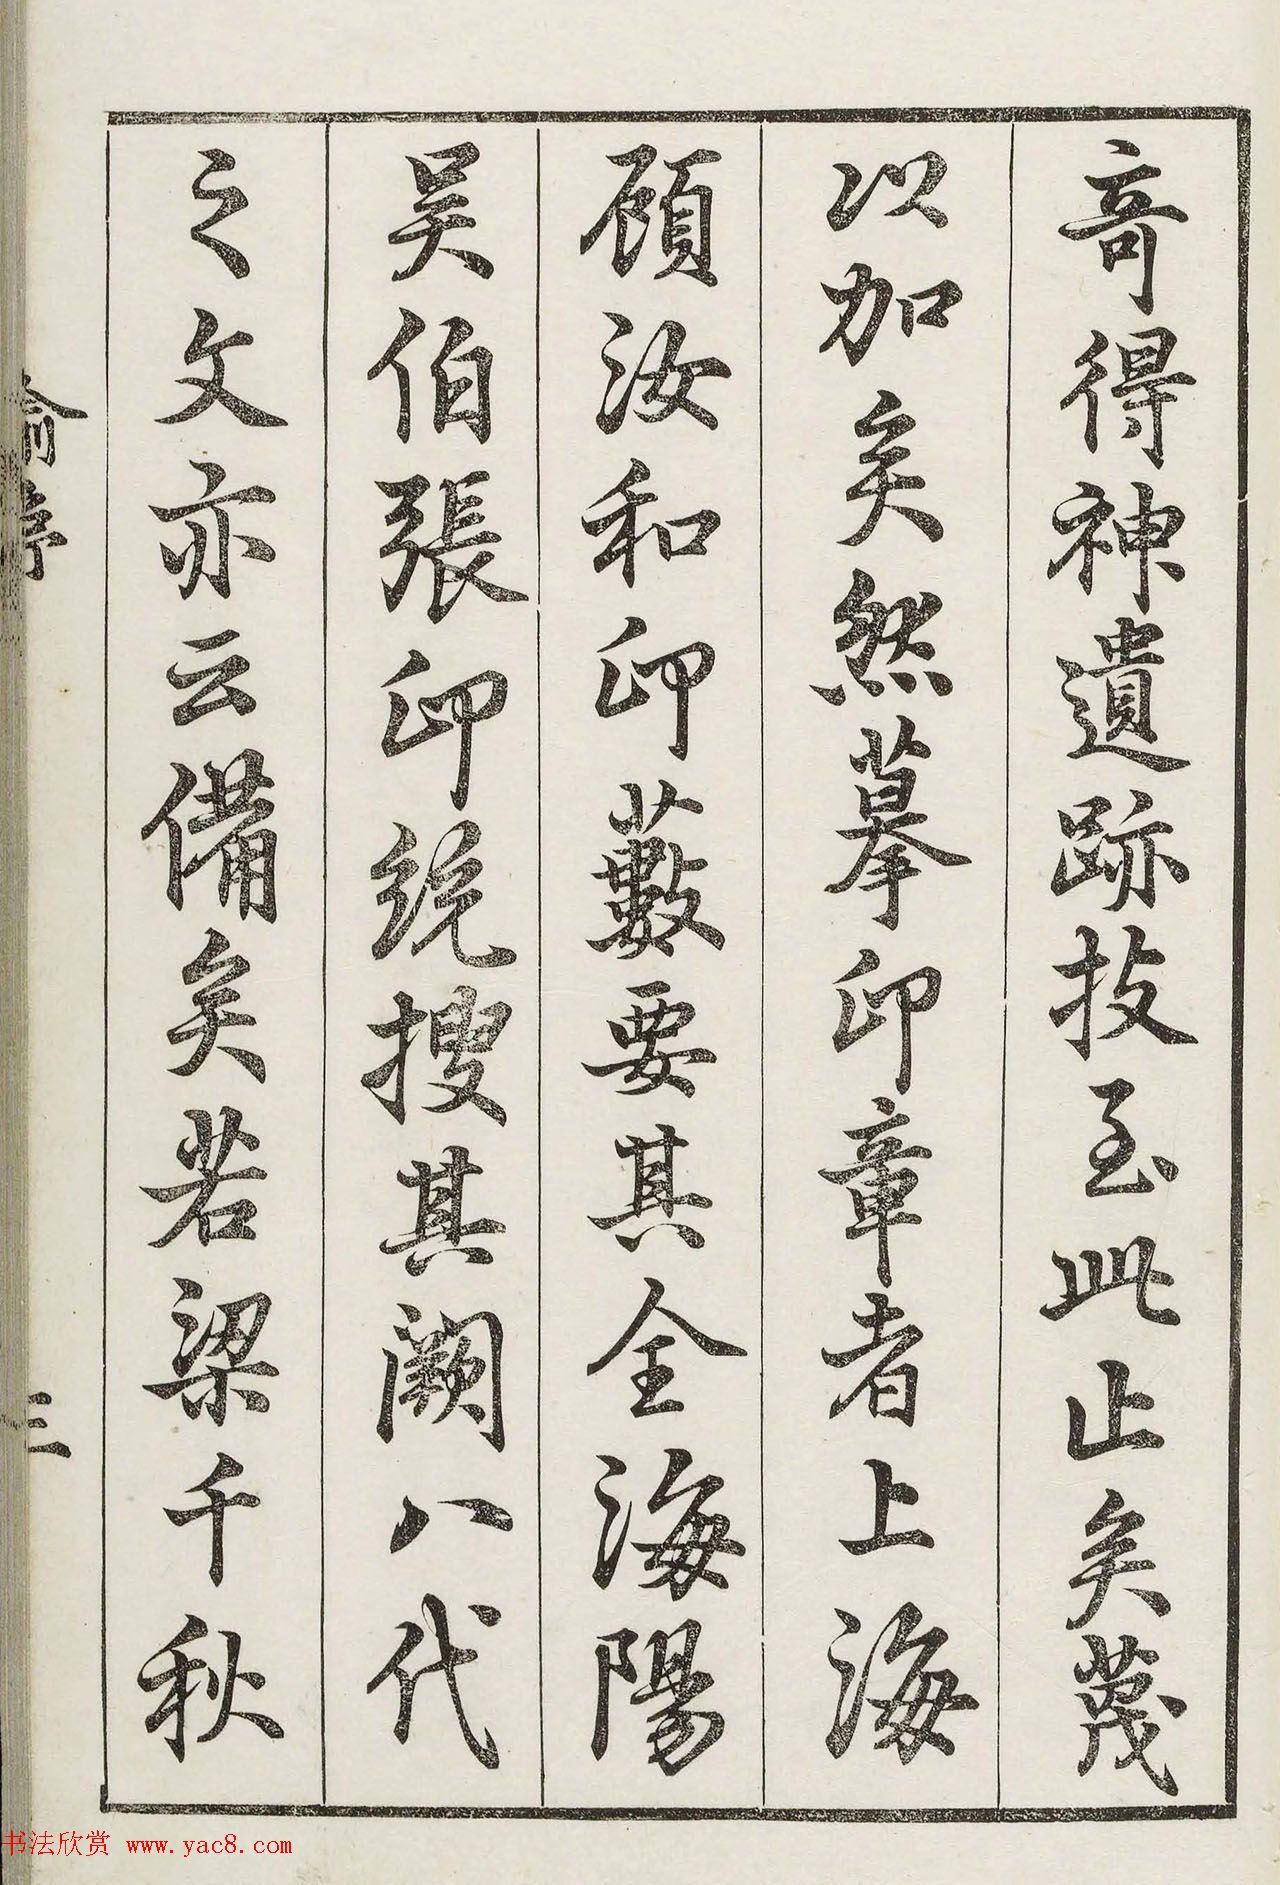 奇得神遺跡技至此止矣蔑
以加矣然摹印章者上海
顧汝和印藪要其全海陽
吴伯張印統搜其闕八代
之文亦云備矣若梁千秋
俞序
三
书法欣赏 www.yac8.com